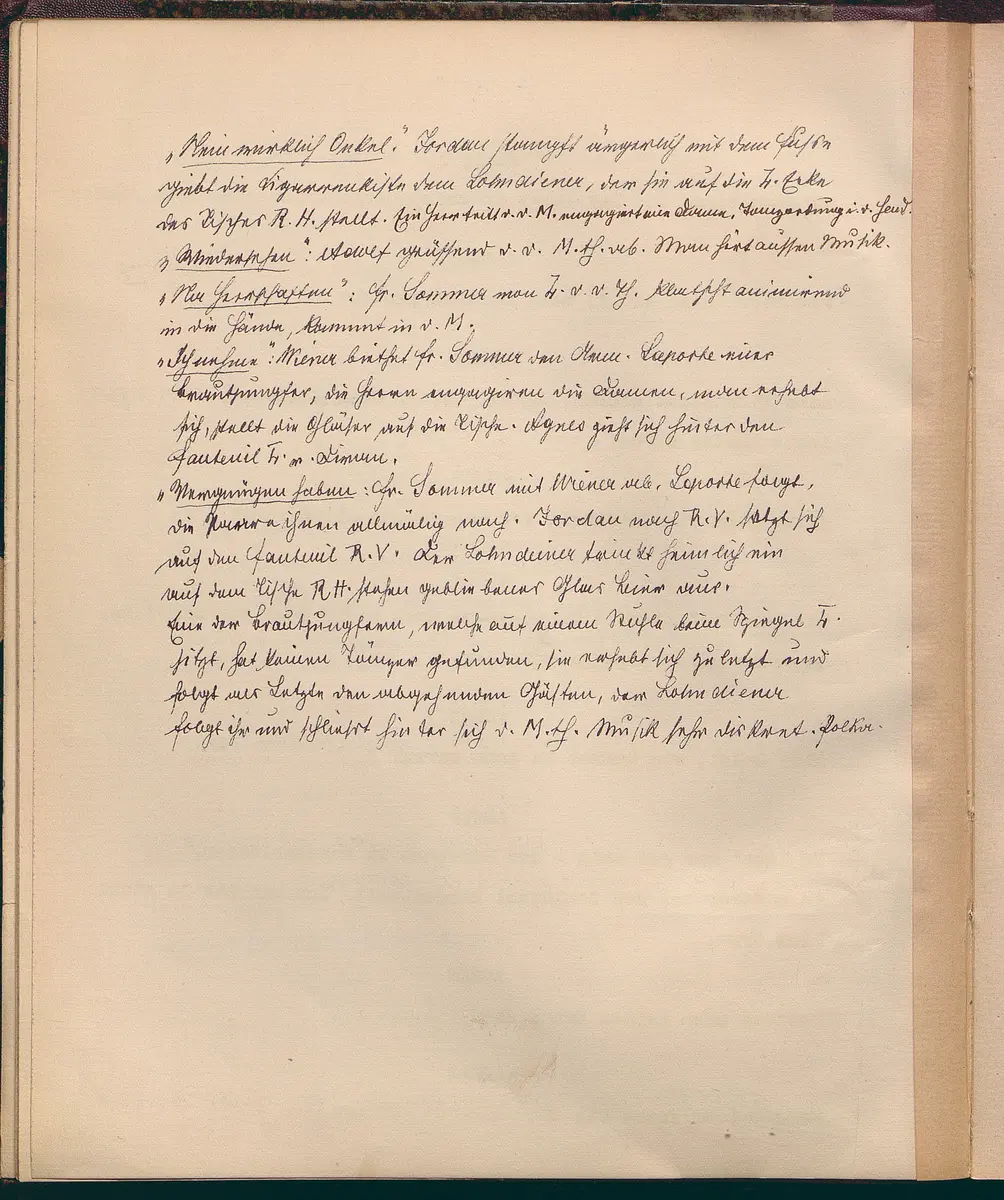 „Nein wirklich Onkel": Jordan stampft ärgerlich mit dem Fusse
giebt die Cigarrenkiste dem Lohndiener, der sie auf die L. Ecke
des Tisches R. H. stellt. Ein Herr tritt v. d. M. engagiert eine Dame, Tanzordnung i. d. Hand.
„Wiedersehen": Adolf grüssend d. d. M. th. ab. Man hört aussen Musik.
„Na Herrschaften": Fr. Sommer von L. d. d. Th. klatscht animirend
in die Hände, kommt in d. M.
„Ich nehme": Wiener biethet Fr. Sommer den Arm. Laporte einer
Brautjungfer, die Herrn engagiren die Damen, man erhebt
sich, stellt die Gläser auf die Tische. Agnes zieht sich hinter den
Fauteuil L. v. Divan.
„Vergnügen haben: Fr. Sommer mit Wiener ab, Laporte folgt,
die Paare ihnen allmälig nach. Jordan nach R. V. setzt sich
auf den Fauteuil R. V. Der Lohndiener trinkt heimlich ein
auf dem Tische R H. stehen gebliebenes Glas Bier aus.
Eine der Brautjungfern, welche auf einem Stuhle beim Spiegel L.
sitzt, hat keinen Tänzer gefunden, sie erhebt sich zuletzt und
folgt als Letzte den abgehenden Gästen, der Lohndiener
folgt ihr und schliesst hinter sich d. M. th. Musik sehr diskret. Polka.